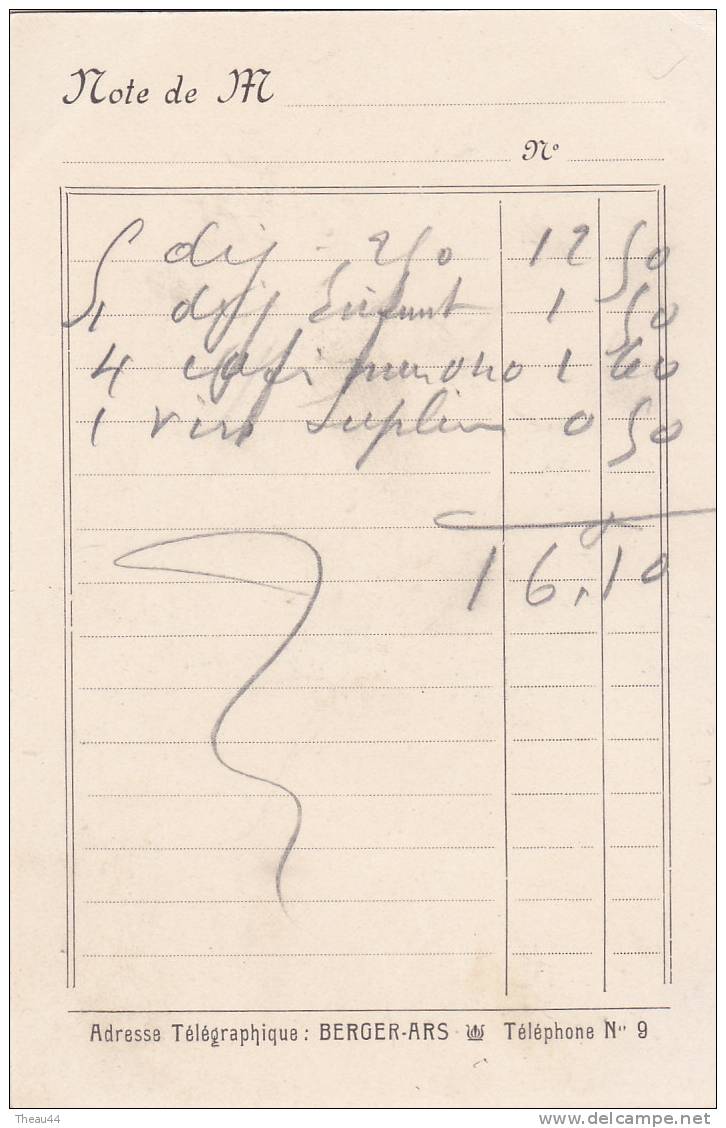 Note de M
N°
5 dej 250 12 50
1 dej Enfant 1 50
4 cafi 1 60
1 vin suplem 0 50
16,10
Adresse Télégraphique : BERGER-ARS Téléphone N° 9
Theau44
delcampe.net